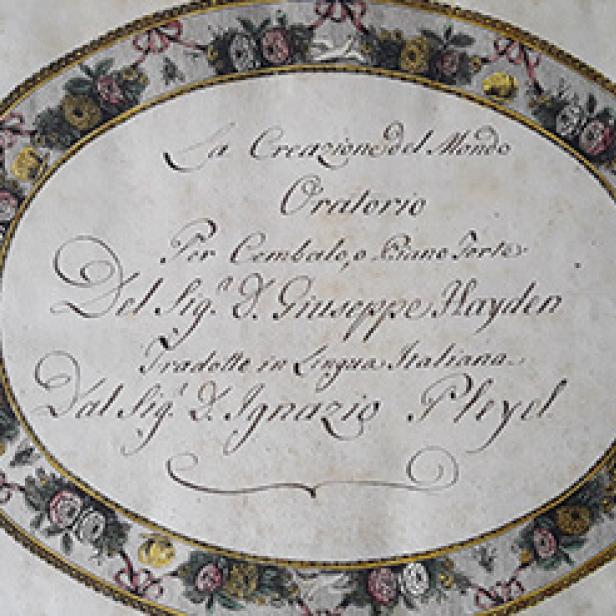 La Creazione del Mondo
Oratorio
Per Cembalo, o Piano Forte
Del Sig.ʳ D. Giuseppe Hayden
Tradotte in Lingua Italiana
Dal Sig.ʳ D. Ignazio Pleyel